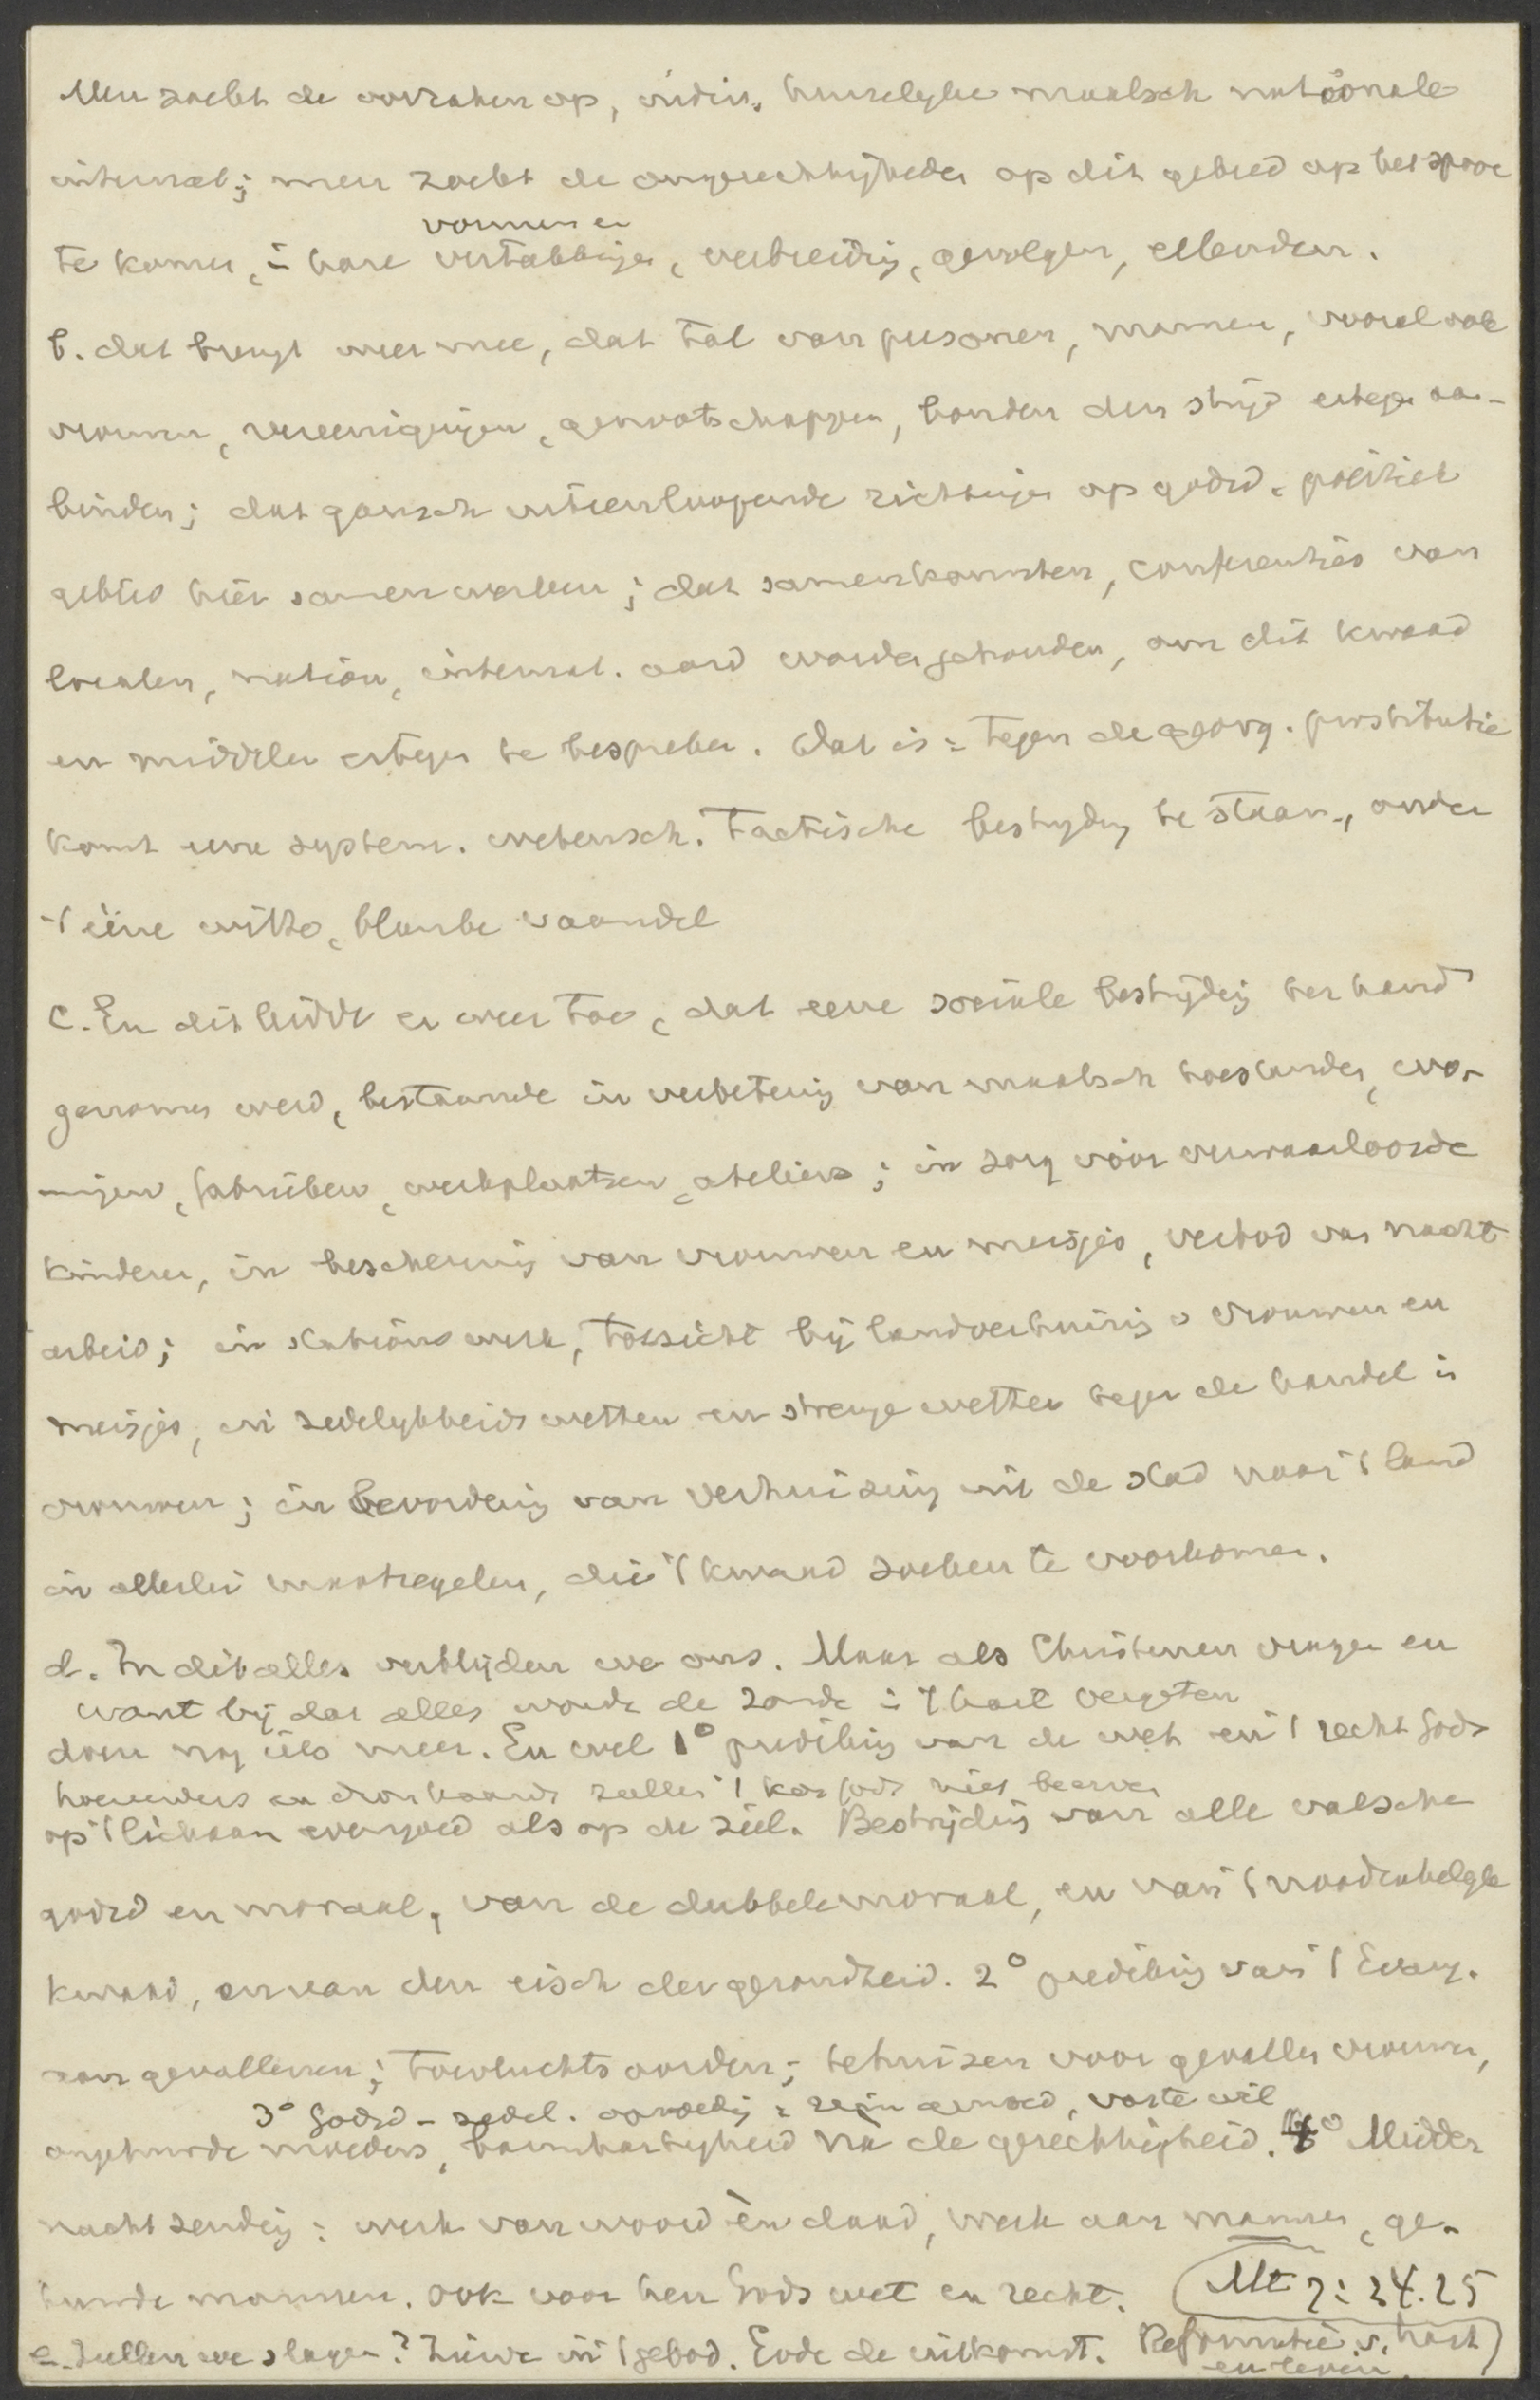 Men zoekt de oorzaken op, individ. huiselyke maatsch nationale
internat; men zoekt de ongerechtigheden op dit gebied op het spoor
vormen en
te komen, in hare vertakkingen, verbreiding, gevolgen, ellenden.
b. dat brengt weer mee, dat tal van personen, mannen, vooral ook
vrouwen, vereenigingen, genootschappen, bonden den strijd ertegen aan-
binden; dat gansch uiteenloopende richtingen op godsd. politiek
gebied hier samenwerken; dat samenkomsten, conferenties van
localen, nation, internat. aard worden gehouden, om dit kwaad
en middelen ertegen te bespreken. Dat is: tegen de georg. prostitutie
komt eene system. wetensch. tactische bestryding te staan, onder
't eene witte, blanke vaandel
c. En dit leidde er weer toe, dat eene sociale bestrijding ter hand
genomen werd, bestaande in verbetering van maatsch toestanden, wo-
ningen, fabrieken, werkplaatsen, ateliers; in zorg vóór verwaarloosde
kinderen, in bescherming van vrouwen en meisjes, verbod van nacht
arbeid; in stationswerk, toezicht bij landverhuizing v vrouwen en
meisjes, in zedelykheidswetten en strenge wetten tegen de handel in
vrouwen; in bevordering van verhuizing uit de stad naar 't land
in allerlei maatregelen, die 't kwaad zoeken te voorkomen.
d. In dit alles verblijden we ons. Maar als Christenen vragen en
want bij dat alles wordt de zonde in 't hart vergeten
doen nog iets meer. En wel 1° prediking van de wet en 't recht Gods
hoereerders en dronkaards zullen 't kon. Gods niet beerven
op 't lichaam evengoed als op de ziel. Bestrijding van alle valsche
godsd en moraal, van de dubbele moraal, en van 't noodzakelyk
kwaad, en van den eisch der gezondheid. 2° prediking van 't Evang.
aan gevallenen; toevluchtsoorden; tehuizen voor gevallen vrouwen,
3° Godsd - zedel. opvoeding: rein gemoed, vaste wil
ongehuwde moeders, barmhartigheid na de gerechtigheid. 4° Midder
nachtzending: werk van woord èn daad, werk aan mannen, ge-
huwde mannen. Ook voor hen Gods wet en recht. Mt 7: 24.25
e. Zullen we slagen? Zie we in 't gebod. Gode de uitkomst. Reformatie v. hart
en leven.